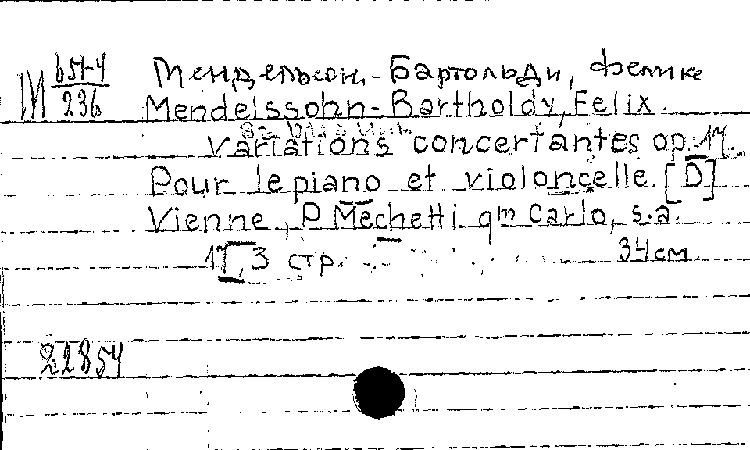 М 651-4
236
Мендельсон-Бартольди, Феликс
Mendelssohn-Bartholdy, Felix.
Variations concertantes op. 17.
Pour le piano et violoncelle. [D]
Vienne, P. Mechetti qm Carlo, s.a.
17, 3 стр. 34 см
22854